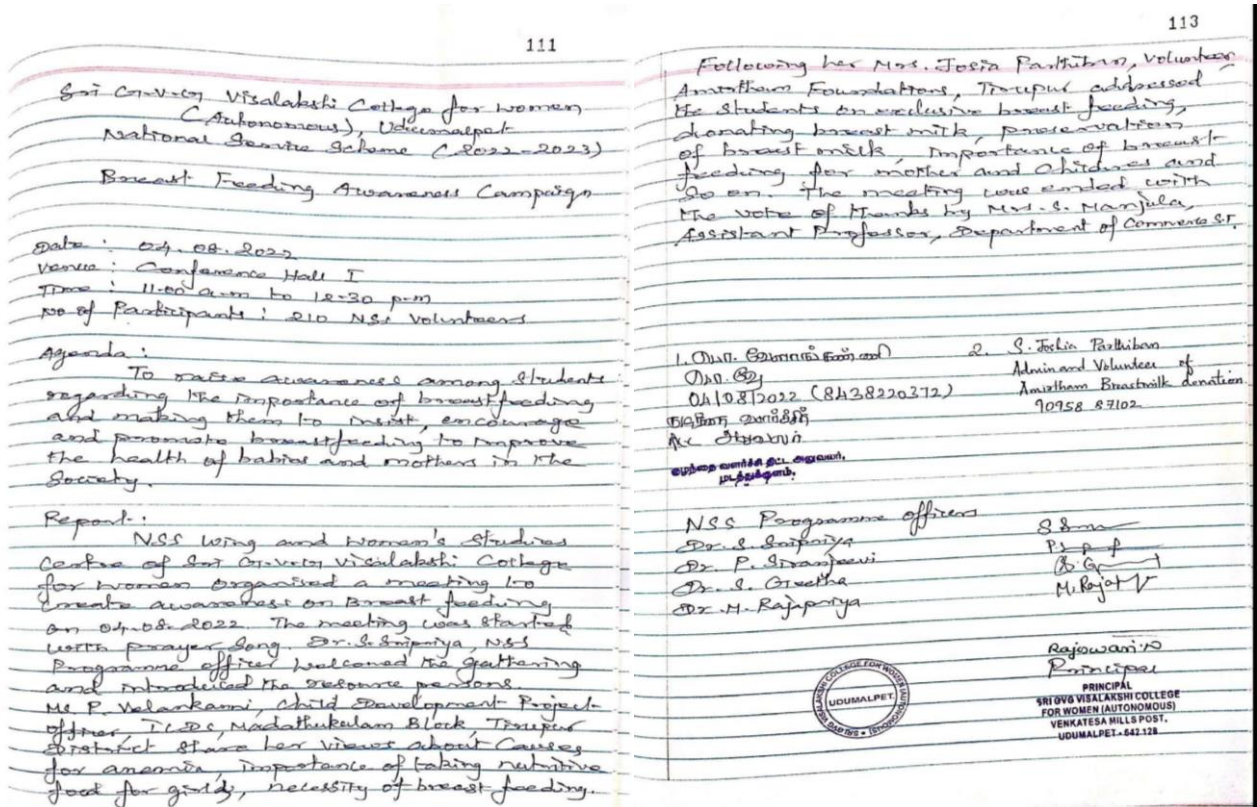 111
Sri G.V.G Visalakshi College for women
(Autonomous), Udumalpet
National Service Scheme (2022-2023)
Breast Feeding Awareness Campaign
Date : 04.08.2022
Venue : Conference Hall I
Time : 11.00 a.m to 12.30 p.m
No of Participants : 210 NSS Volunteers
Agenda :
To raise awareness among students
regarding the importance of breastfeeding
and making them to insist, encourage
and promote breastfeeding to improve
the health of babies and mothers in the
Society.
Report :
NSS wing and women's studies
Centre of Sri G.V.G Visalakshi College
for women organised a meeting to
create awareness on Breast feeding
on 04.08.2022. The meeting was started
with prayer song. Dr. S. Sripriya, NSS
Programme officer welcomed the gathering
and introduced the resource persons.
Ms P. Velankanni, Child Development Project
officer, ICDS, Madathukulam Block, Tirupur
District share her views about Causes
for anemia, importance of taking nutritive
food for girls, necessity of breast feeding.
113
Following her Mrs. Josia Parthiban, Volunteer,
Amirtham Foundations, Tirupur addressed
the students on exclusive breast feeding,
donating breast milk, preservation
of breast milk, importance of breast
feeding for mother and childrens and
so on. The meeting was ended with
the vote of thanks by Mrs. S. Manjula,
Assistant Professor, Department of Commerce
1.
04/08/2022 (8438220372)
குழந்தை வளர்ச்சி திட்ட அலுவலர்,
மடத்துக்குளம்.
2. S. Joshia Parthiban
Admin and Volunteer of
Amirtham Breastmilk donation
90958 87102
NSS Programme officers
Dr. S. Sripriya
Dr. P. Siranjeevi
Dr. S. Geetha
Dr. M. Rajapriya
Rajeswari.N
Principal
PRINCIPAL
SRI GVG VISALAKSHI COLLEGE
FOR WOMEN (AUTONOMOUS)
VENKATESA MILLS POST,
UDUMALPET - 642 128
UDUMALPET.